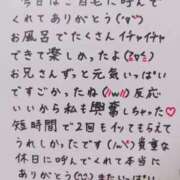 今日はご自宅に呼んで
くれてありがとう(˘▽˘)
お風呂でたくさんイチャイチャ
できて楽しかったよ(≧▽≦)
お兄さんずっと元気いっぱい
ですごかったね(///ω///)反応
いいから私も興奮しちゃった♥
短時間で2回もイッてもらえて
うれしかったです(/ω＼)貴重
な休日に呼んでくれて本当に
ありがとう(^^)さいたいっぱい